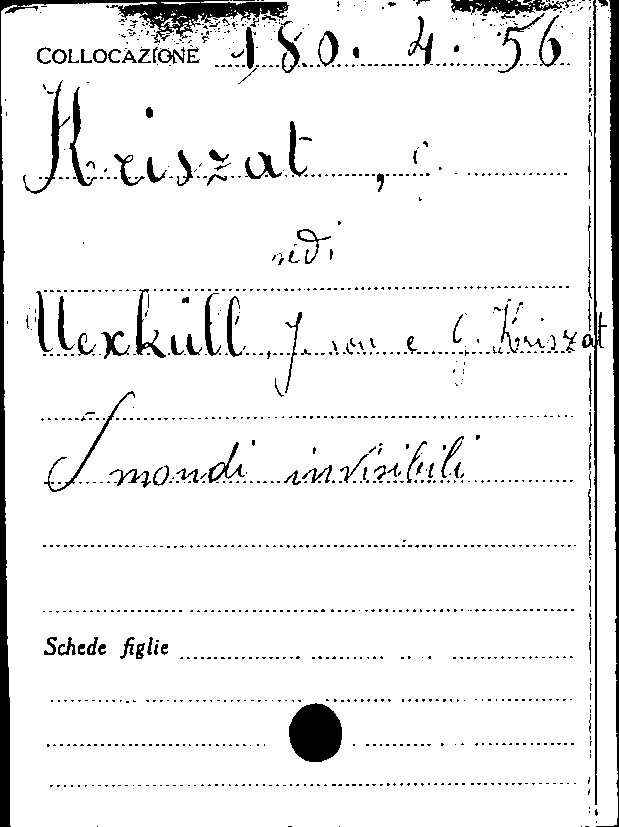 COLLOCAZIONE 180. 4. 56
Kriszat,
vedi
Uexküll, J. von e G. Kriszat
I mondi invisibili
Schede figlie